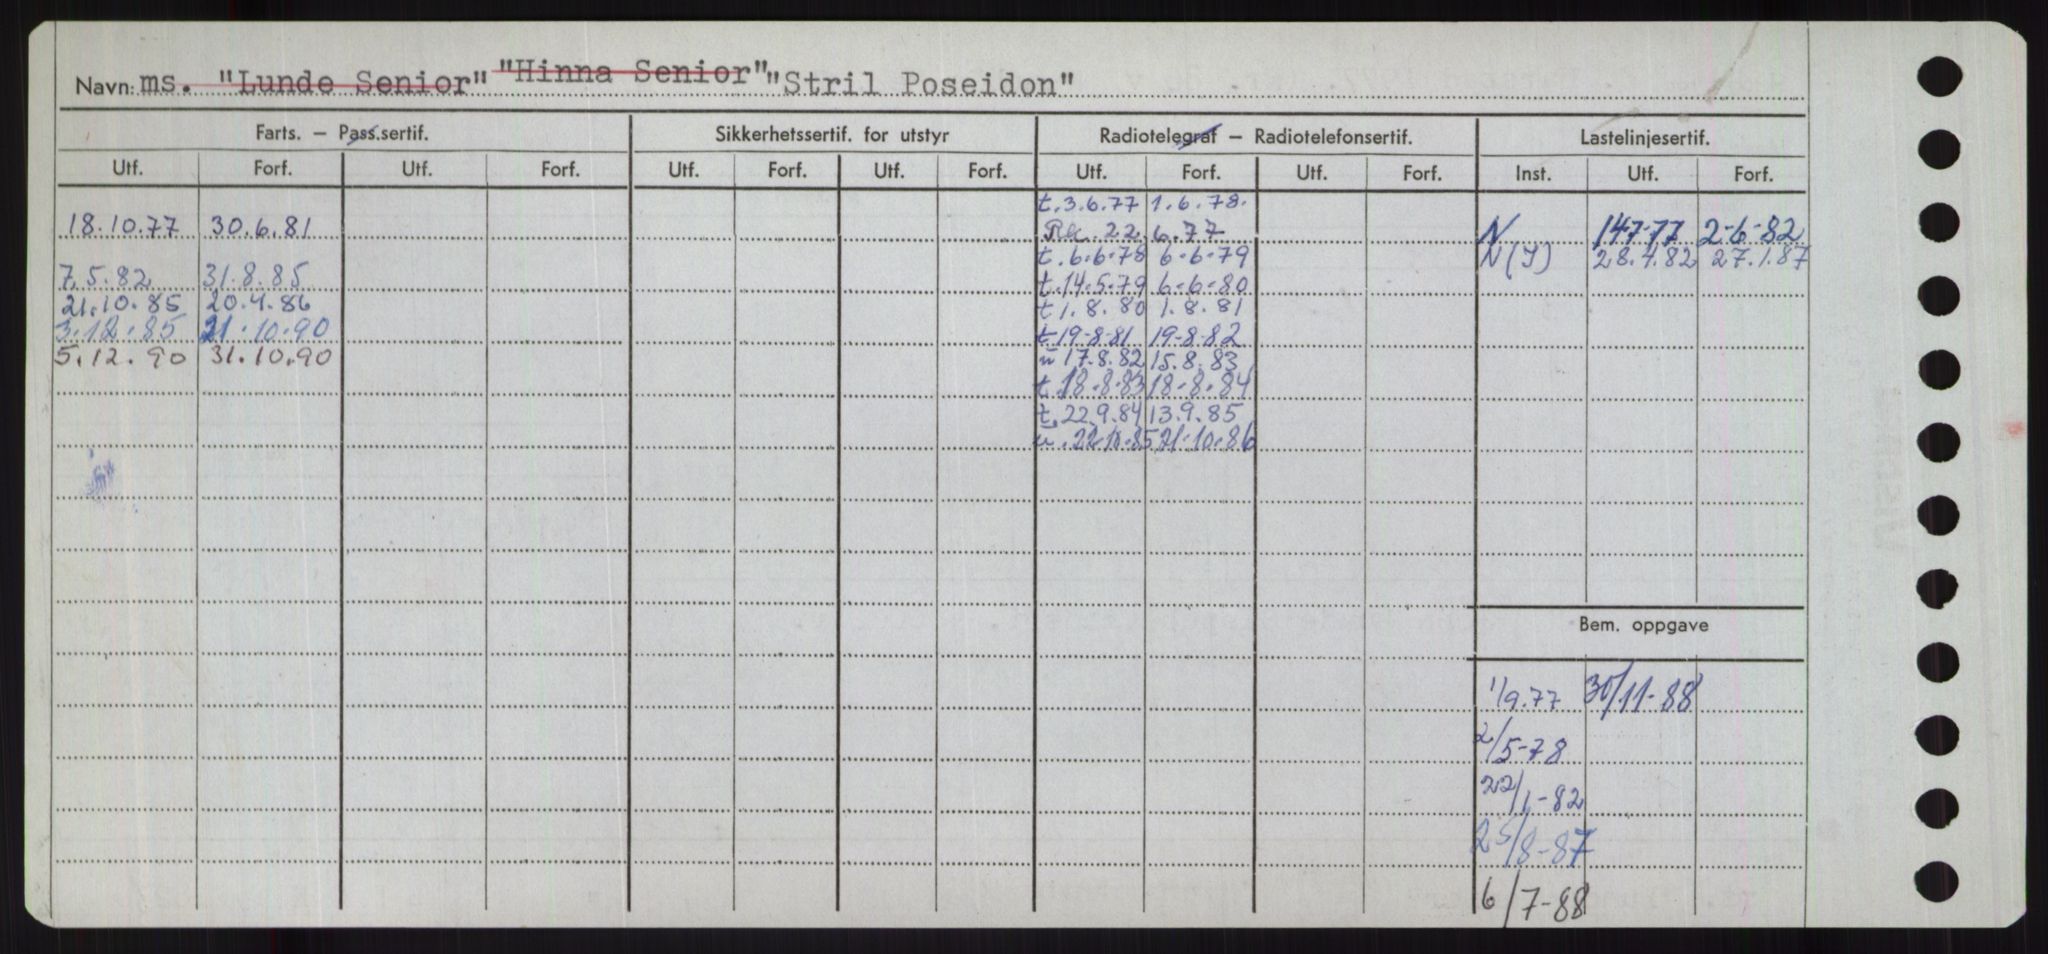 Navn: ms. "Lunde Senior" "Hinna Senior" "Stril Poseidon"
Farts. – Pass.sertif. Sikkerhetssertif. for utstyr Radiotelegraf – Radiotelefonsertif. Lastelinjesertif.
Utf. Forf. Utf. Forf. Utf. Forf. Utf. Forf. Utf. Forf. Utf. Forf. Inst. Utf. Forf.
t. 3.6.77 1.6.78.
18.10.77 30.6.81 22.6.77 N 14-7-77 2-6-82
t. 6.6.78 6.6.79 N(Y) 28.4.82 27.1.87
7.5.82 31.8.85 t. 14.5.79 6-6-80
21.10.85 20.4.86 t 1.8.80 1.8.81
3.12.85 21.10.90 t 19-8-81 19-8-82
5.12.90 31.10.90 17.8.82 15.8.83
t. 18-8-83 18-8-84
t. 22.9.84 13.9.85
22.10.85 21.10.86
Bem. oppgave
1/9.77 30/11-88
2/5-78
22/1-82
25/8-87
6/7-88